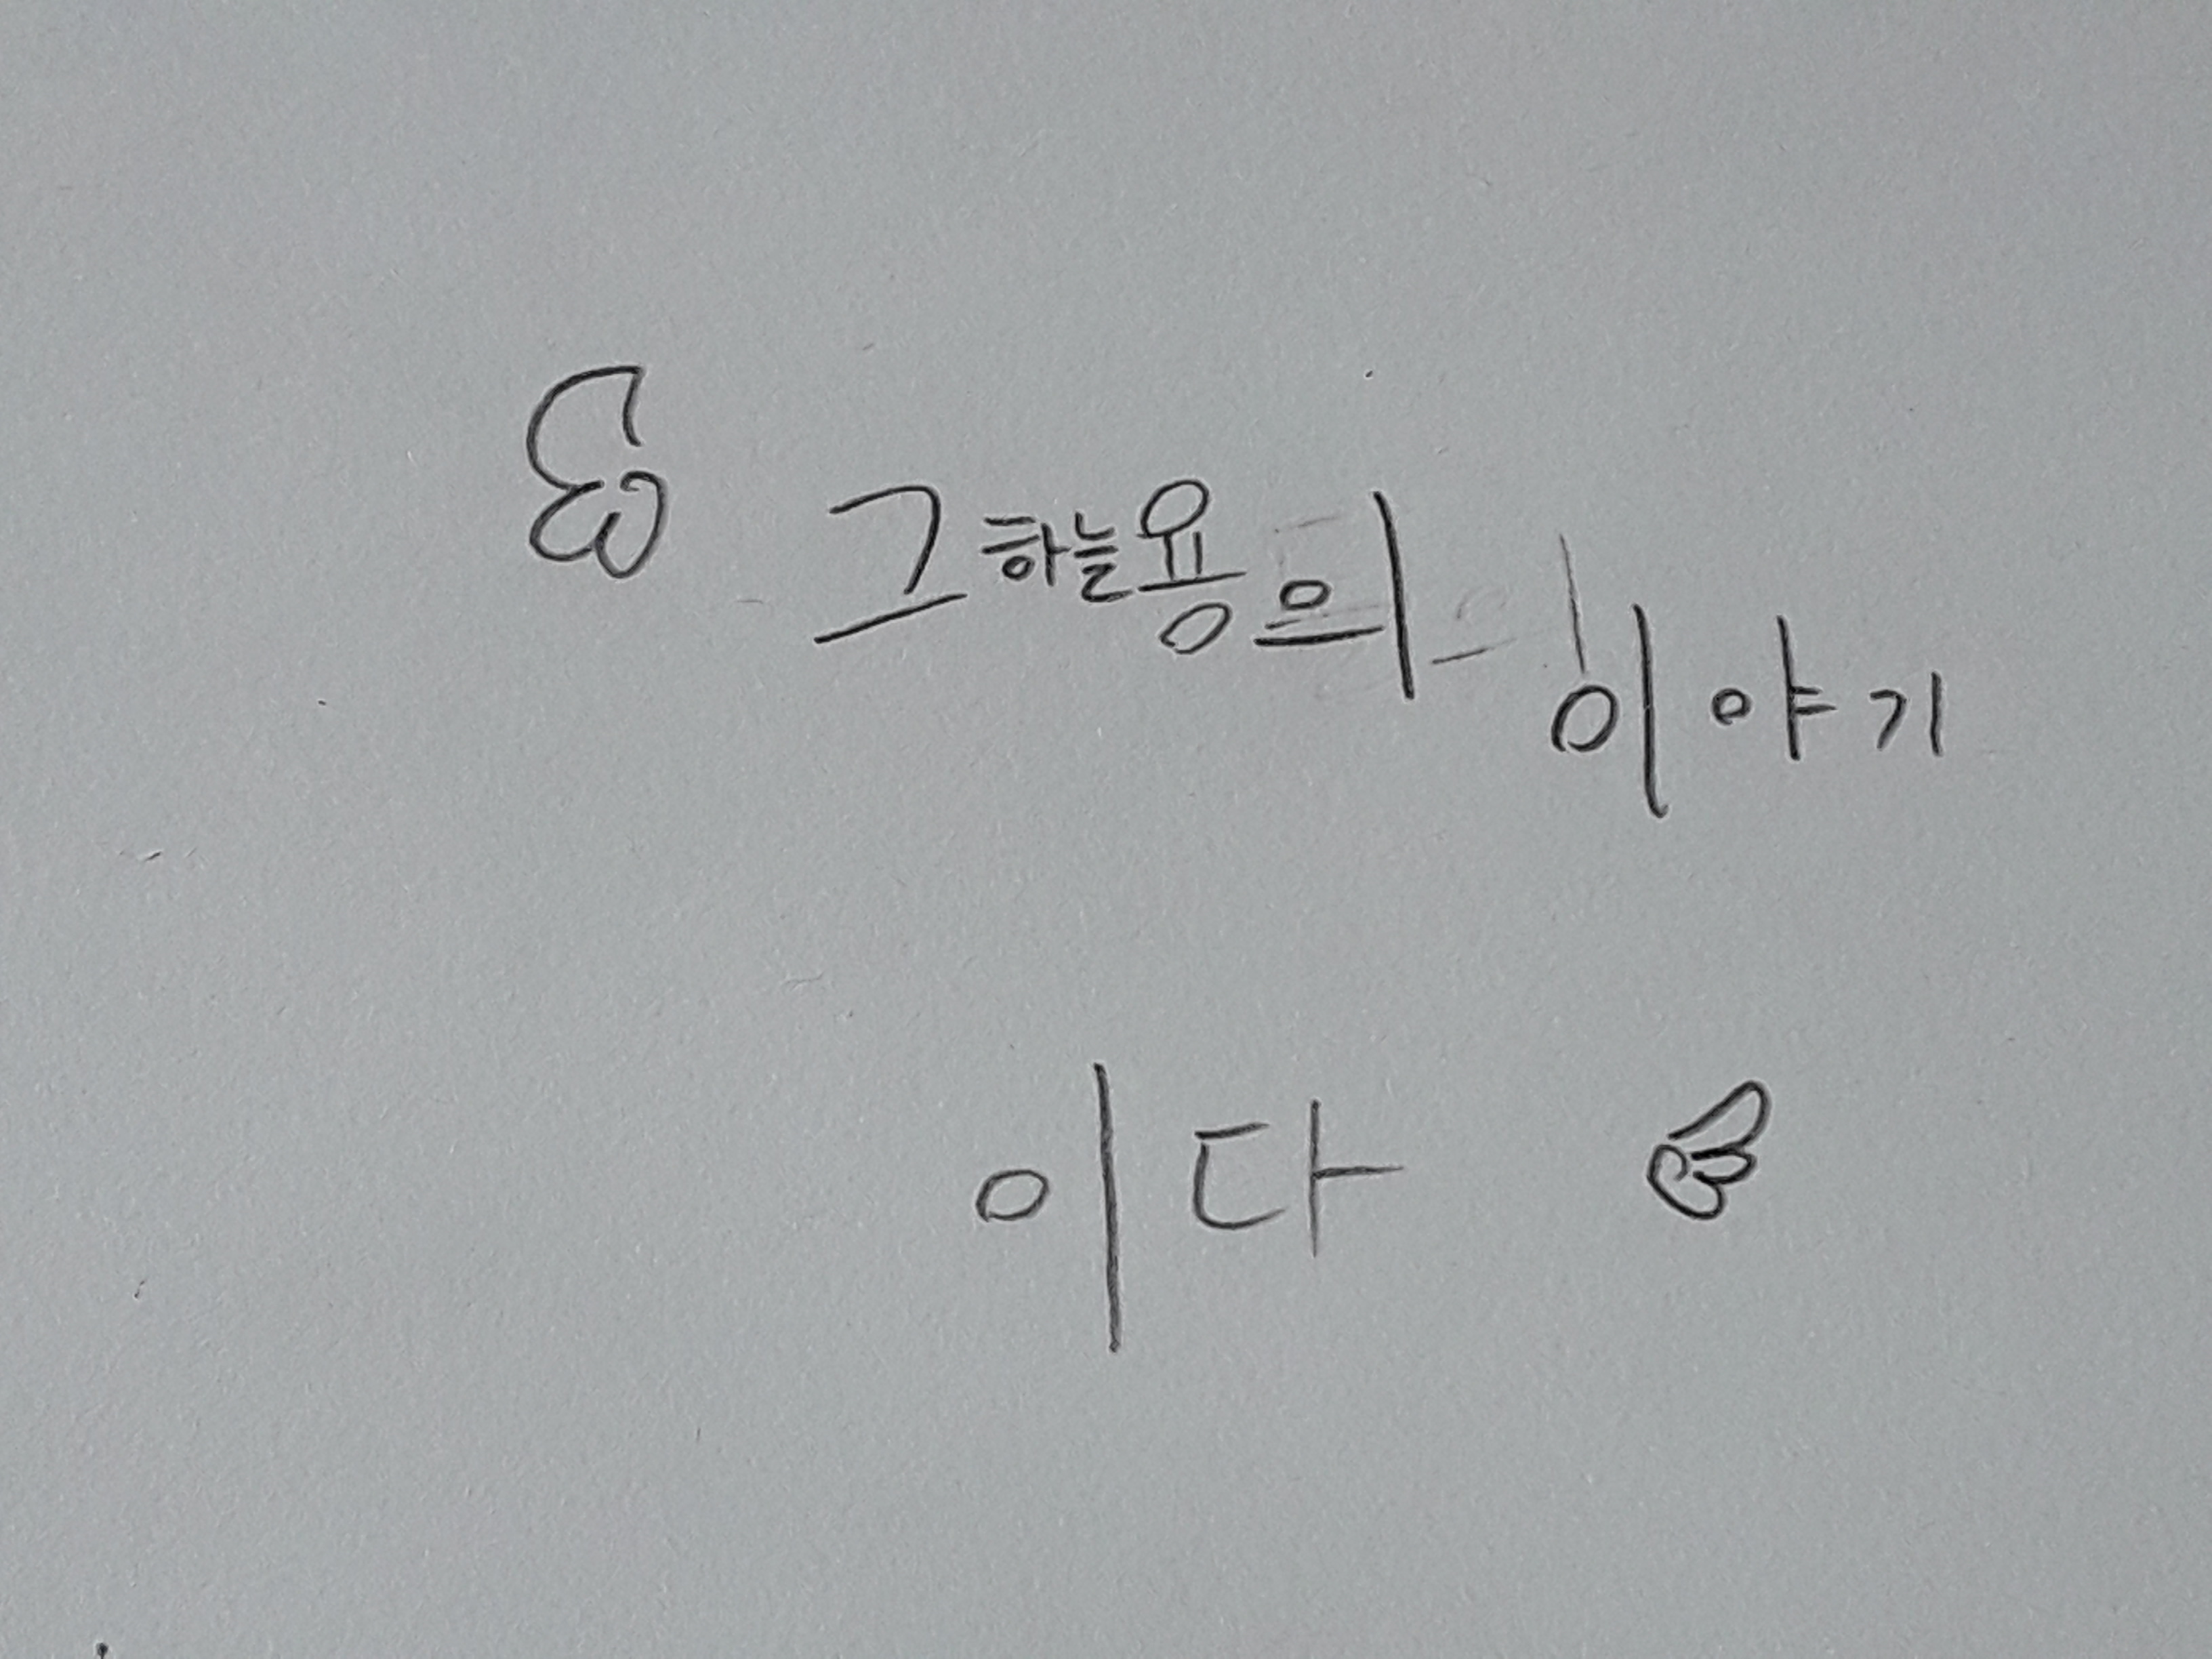 그하늘용의 이야기
이다